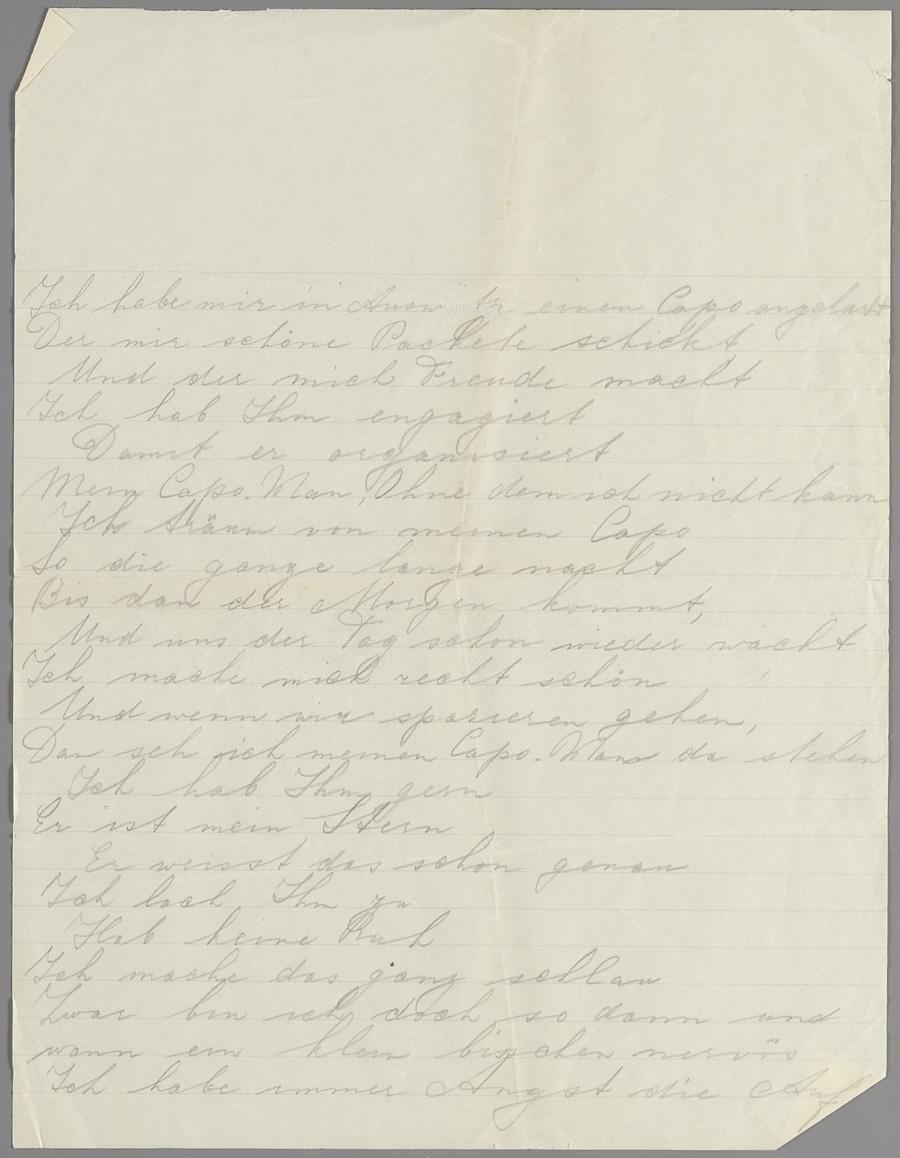 Ich habe mir in einen Capo angelacht
Der mir schöne Packete schickt
Und der mich Freude macht
Ich hab Ihm engagiert
Damit er organisiert
Mein Capo-Man, Ohne dem ich nicht kann
Ich träum von meinen Capo
So die ganze lange nacht
Bis dan der Morgen kommt,
Und uns der Tag schon wieder wacht
Ich mache mich recht schön
Und wenn wir spazieren gehen,
Dan seh ich meinen Capo-Man da stehen
Ich hab Ihm gern
Er ist mein Stern
Er weisst das schon genau
Ich lach Ihm zu
Hab keine Ruh
Ich mache das ganz schlau
Zwar bin ich doch so dann und
wann ein klein bischen nervös
Ich habe immer Angst die Auf